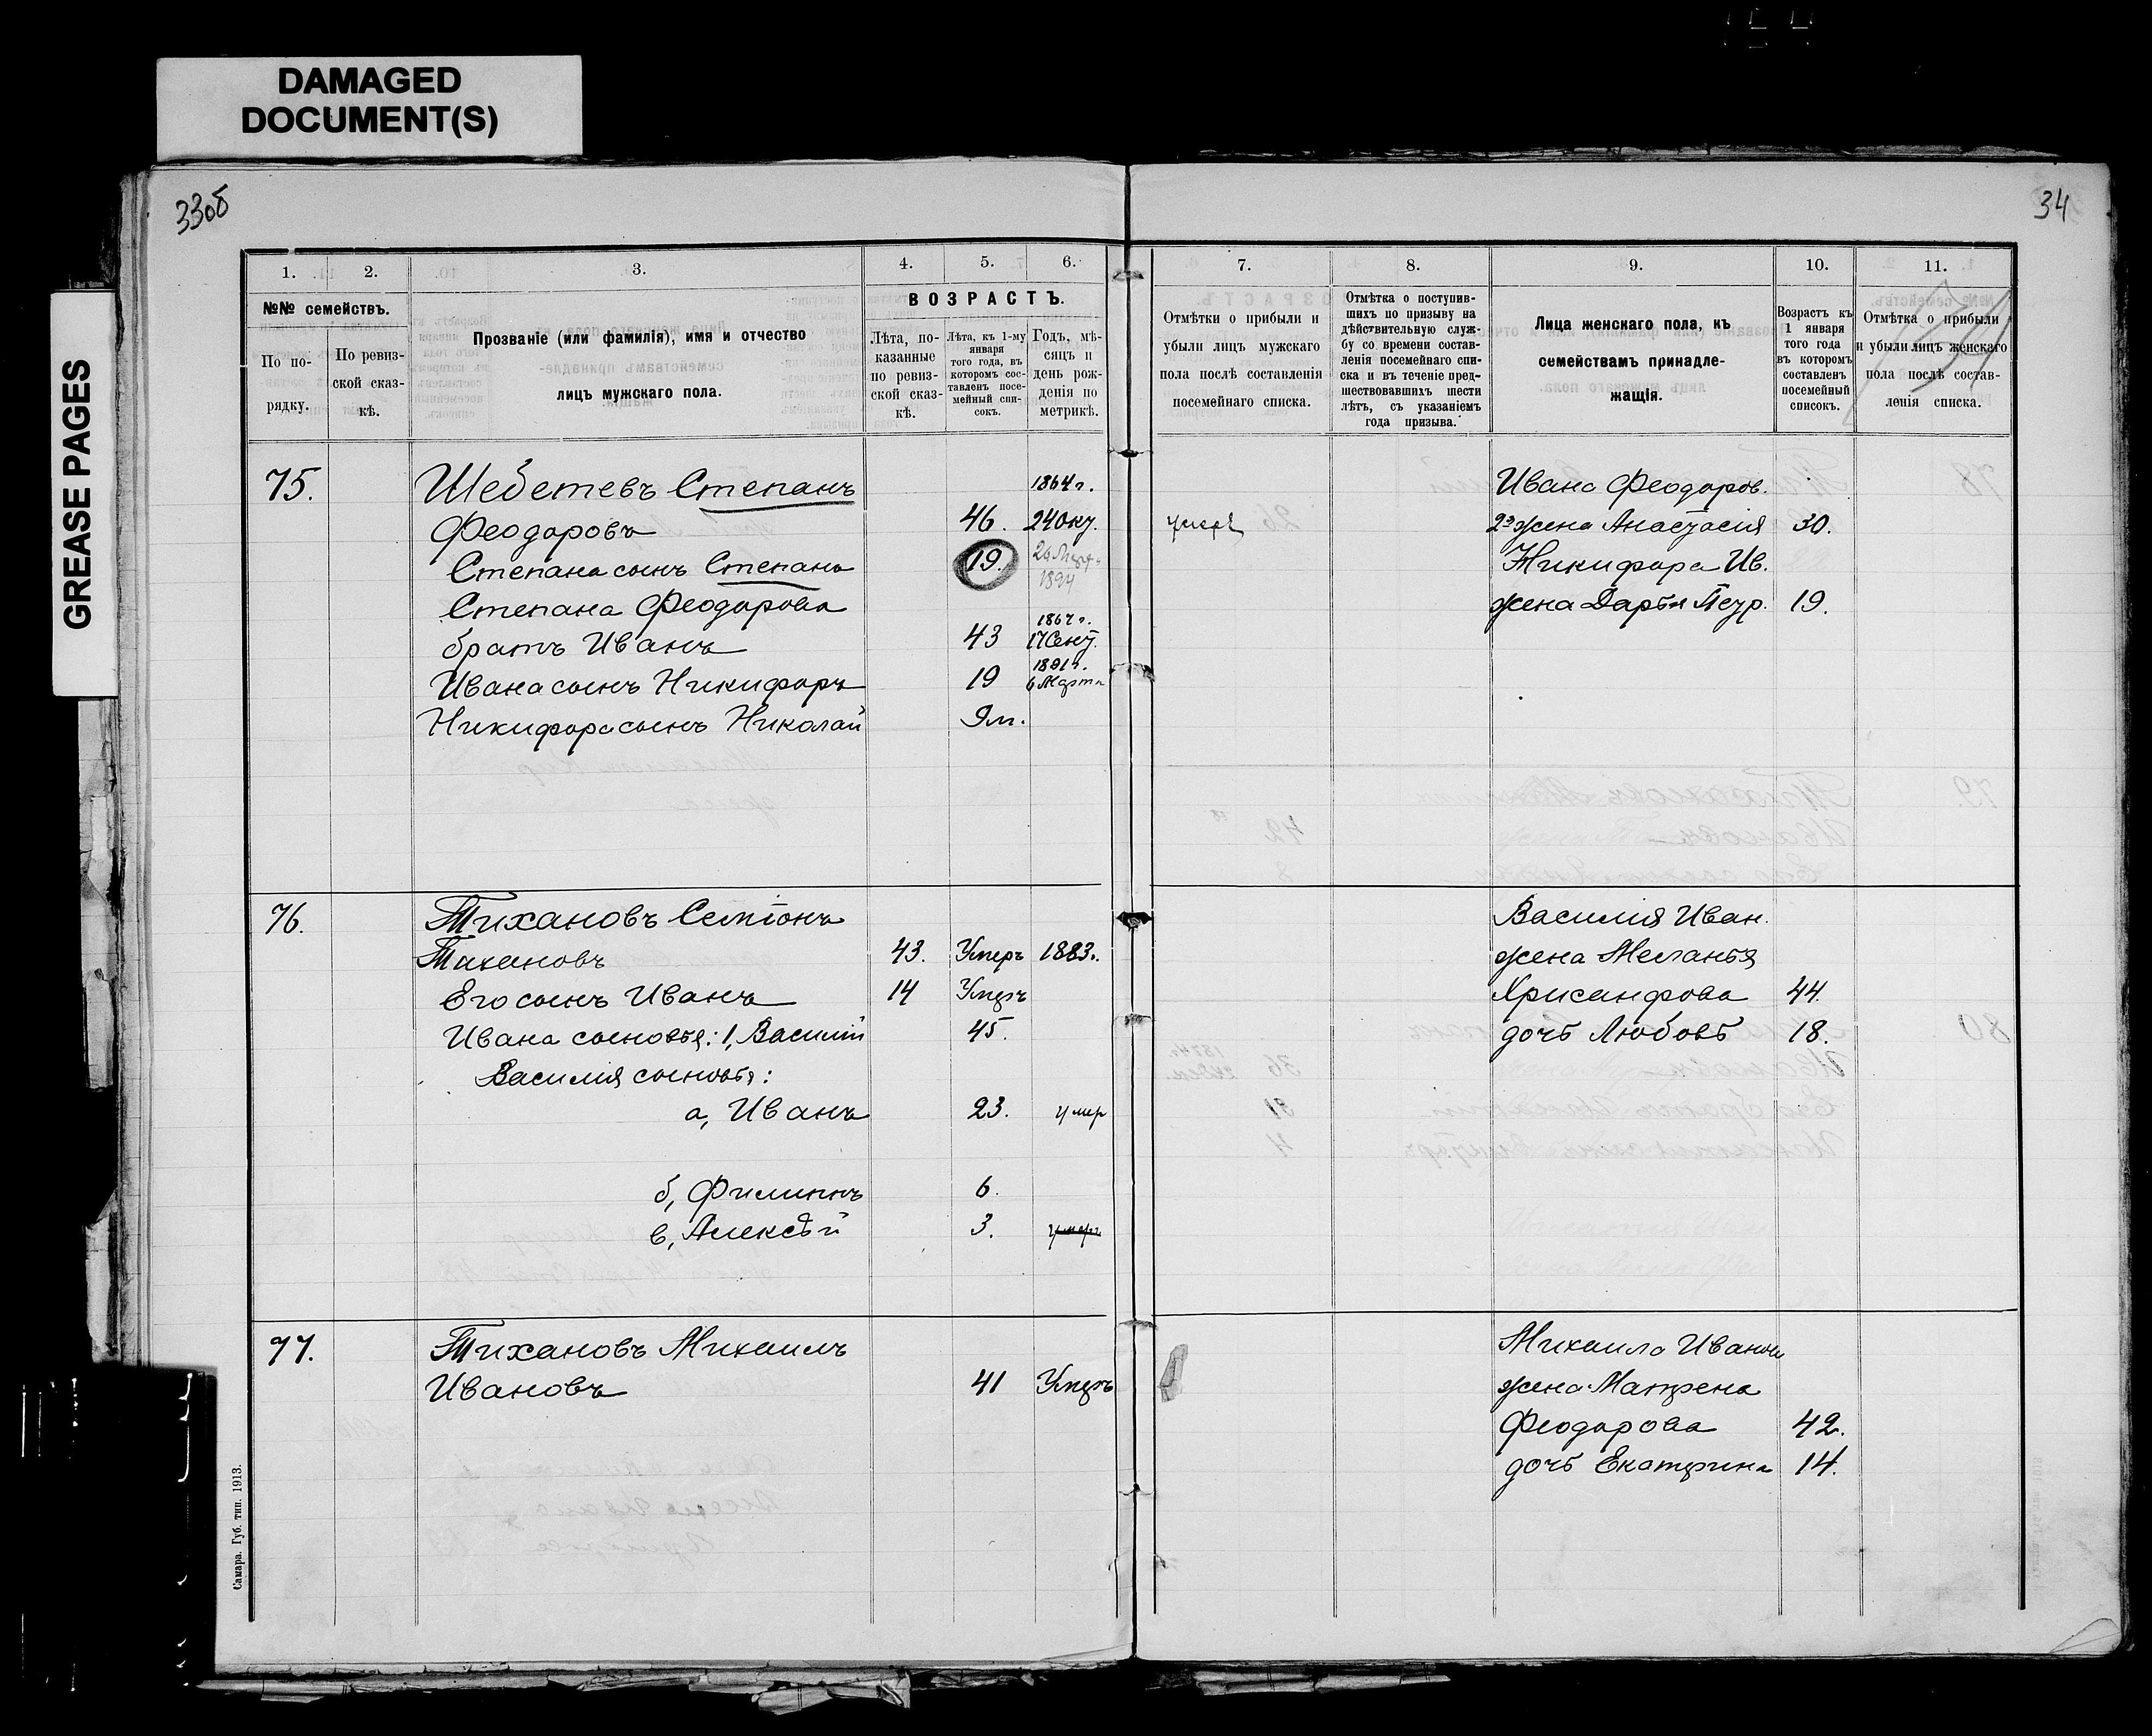 DAMAGED
DOCUMENT(S)
GREASE PAGES
33об
34
1.
2.
3.
4.
5.
6.
№№ семействъ.
По по-
рядку.
По ревиз-
ской сказ-
кѣ.
Прозваніе (или фамилія), имя и отчество
лицъ мужскаго пола.
ВОЗРАСТЪ.
Лѣта, по-
казанные
по ревиз-
ской сказ-
кѣ.
Лѣта, къ 1-му
января
того года, въ
которомъ сос-
тавленъ посе-
мейный спи-
сокъ.
Годъ, мѣ-
сяцъ и
день рож-
денія по
метрикѣ.
7.
8.
9.
10.
11.
Отмѣтки о прибыли и
убыли лицъ мужскаго
пола послѣ составленія
посемейнаго списка.
Отмѣтка о поступив-
шихъ по призыву на
дѣйствительную служ-
бу со времени состав-
ленія посемейнаго спи-
ска и въ теченіе пред-
шествовавшихъ шести
лѣтъ, съ указаніемъ
года призыва.
Лица женскаго пола, къ
семействамъ принадле-
жащія.
Возрастъ къ
1 января
того года
въ которомъ
составленъ
посемейный
списокъ.
Отмѣтка о прибыли
и убыли лицъ женскаго
пола послѣ состав-
ленія списка.
75. Шебетевъ Степанъ 1864 г.
Феодоровъ 46. 24 Окт. умеръ
Степана сынъ Степанъ 19. 1894
Степана Феодорова
братъ Иванъ 43 1867 г. 17 Сент.
Ивана сынъ Никифоръ 19 1891 г. 6 Марта
Никифора сынъ Николай 9 м.
Ивана Феодоров.
2я жена Анастасія 30.
Никифора Ив.
жена Дарья Петр. 19.
76. Тихановъ Семіонъ
Тихановъ 43. Умеръ 1883 г.
Его сынъ Иванъ 14 Умеръ
Ивана сыновья: 1, Василій 45.
Василія сыновья:
а, Иванъ 23. умер
б, Филиппъ 6.
в, Алексѣй 3. умеръ
Василія Иван.
жена Меланья
Хрисанфова 44.
дочь Любовь 18.
77. Тихановъ Михаилъ
Ивановъ 41 Умеръ
Михаила Иванова
жена Матрена
Феодорова 42.
дочь Екатерина 14.
Самара. Губ. тип. 1913.